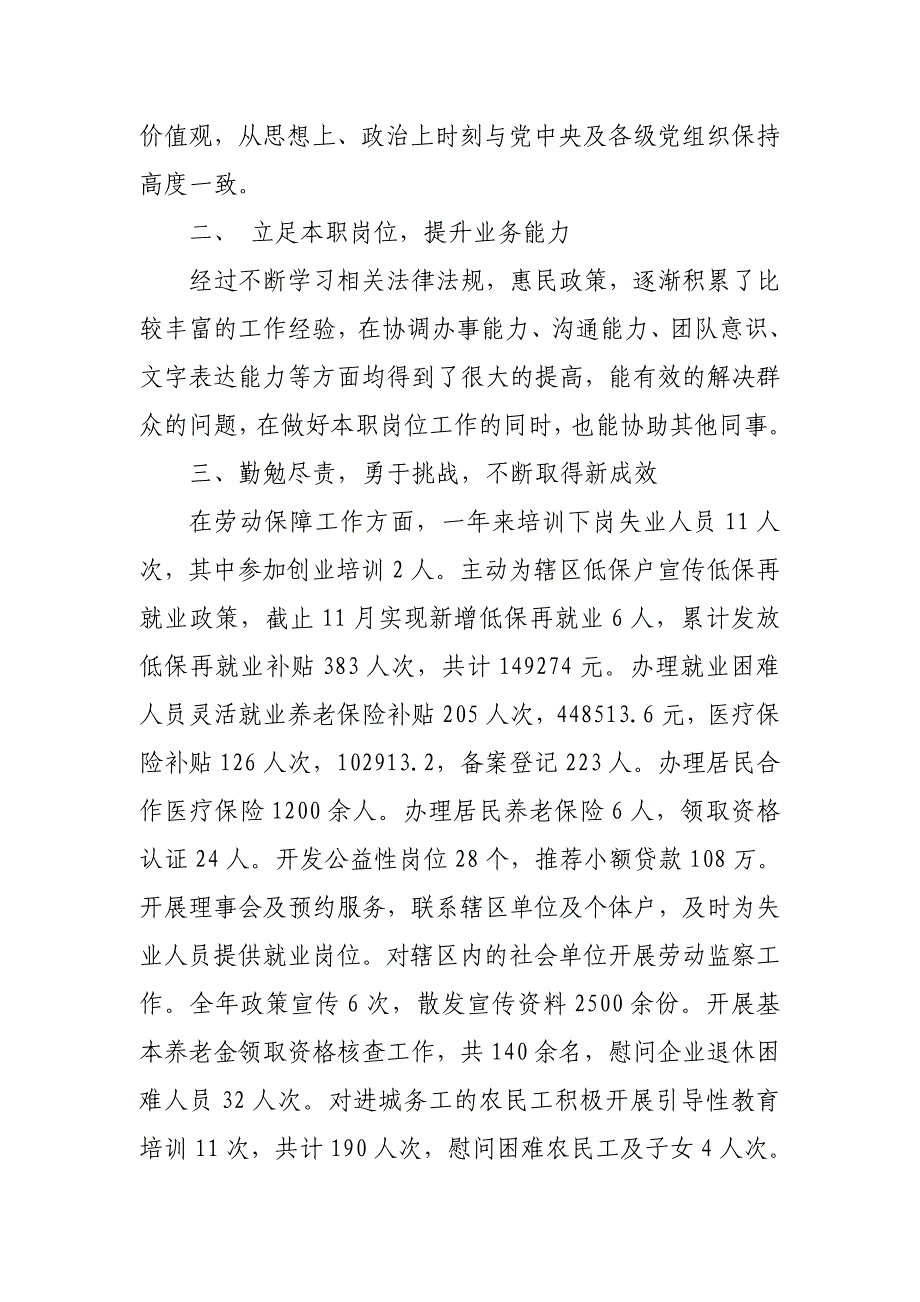 价值观，从思想上、政治上时刻与党中央及各级党组织保持
高度一致。
二、 立足本职岗位，提升业务能力
经过不断学习相关法律法规，惠民政策，逐渐积累了比
较丰富的工作经验，在协调办事能力、沟通能力、团队意识、
文字表达能力等方面均得到了很大的提高，能有效的解决群
众的问题，在做好本职岗位工作的同时，也能协助其他同事。
三、勤勉尽责，勇于挑战，不断取得新成效
在劳动保障工作方面，一年来培训下岗失业人员 11 人
次，其中参加创业培训 2 人。主动为辖区低保户宣传低保再
就业政策，截止 11 月实现新增低保再就业 6 人，累计发放
低保再就业补贴 383 人次，共计 149274 元。办理就业困难
人员灵活就业养老保险补贴 205 人次，448513.6 元，医疗保
险补贴 126 人次，102913.2，备案登记 223 人。办理居民合
作医疗保险 1200 余人。办理居民养老保险 6 人，领取资格
认证 24 人。开发公益性岗位 28 个，推荐小额贷款 108 万。
开展理事会及预约服务，联系辖区单位及个体户，及时为失
业人员提供就业岗位。对辖区内的社会单位开展劳动监察工
作。全年政策宣传 6 次，散发宣传资料 2500 余份。开展基
本养老金领取资格核查工作，共 140 余名，慰问企业退休困
难人员 32 人次。对进城务工的农民工积极开展引导性教育
培训 11 次，共计 190 人次，慰问困难农民工及子女 4 人次。